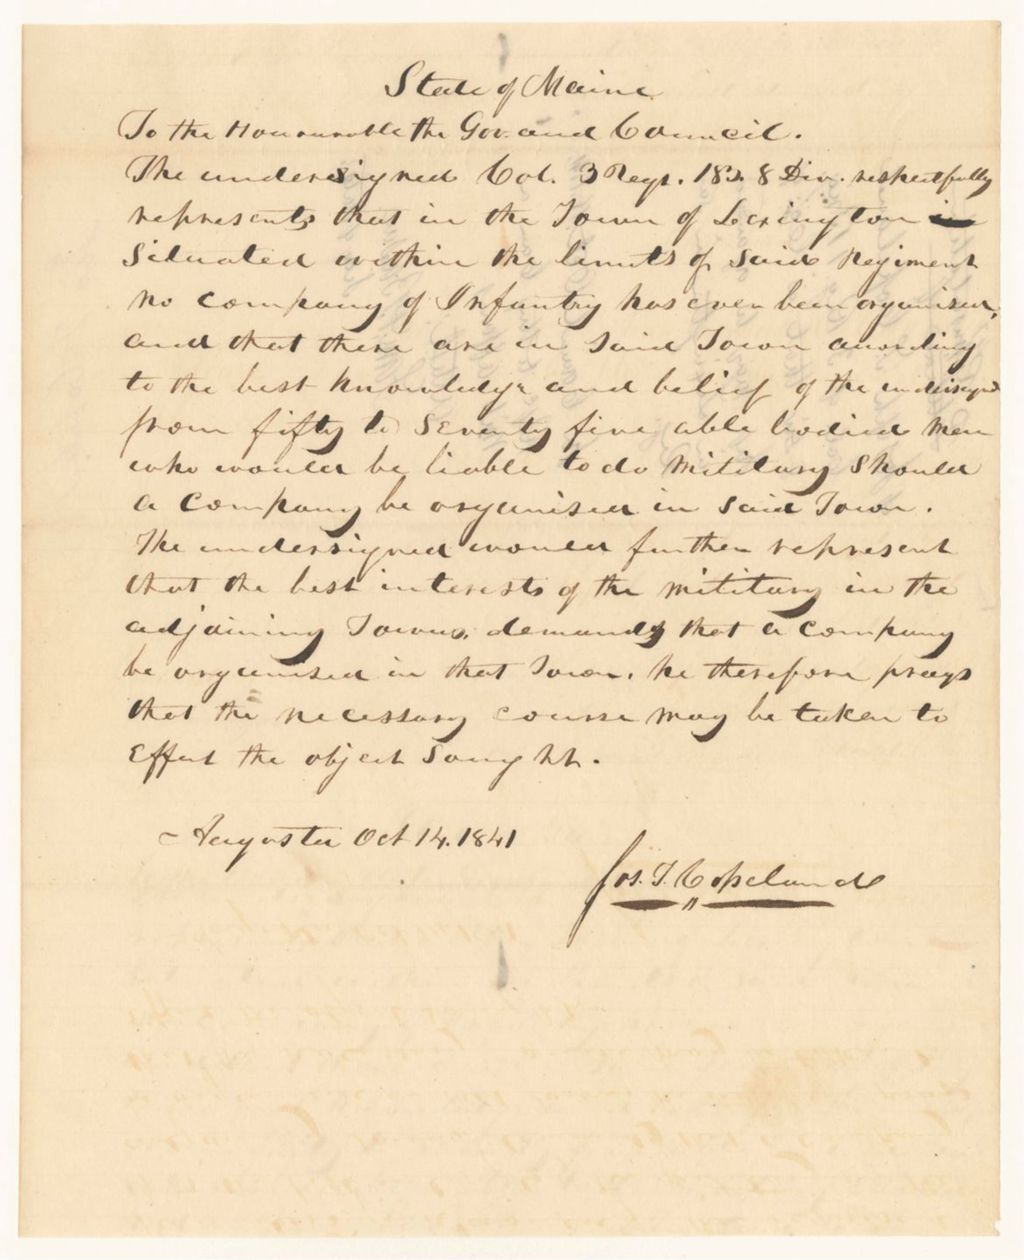 State of Maine
To the Honourable the Gov. and Council.
The undersigned Col. 3 Regt. 1 B. 8 Div. respectfully
represents that in the Town of Lexington
Situated within the limits of said Regiment
no company of Infantry has ever been organised,
and that there are in said Town according
to the best knowledge and belief of the undersigned
from fifty to Seventy five able bodied men
who would be liable to do military should
a Company be organised in said Town.
The undersigned would further represent
that the best interests of the military in the
adjoining Towns, demands that a company
be organised in that Town, he therefore prays
that the necessary course may be taken to
Effect the object Sought.
Augusta Oct 14. 1841
Jos. T. Copeland